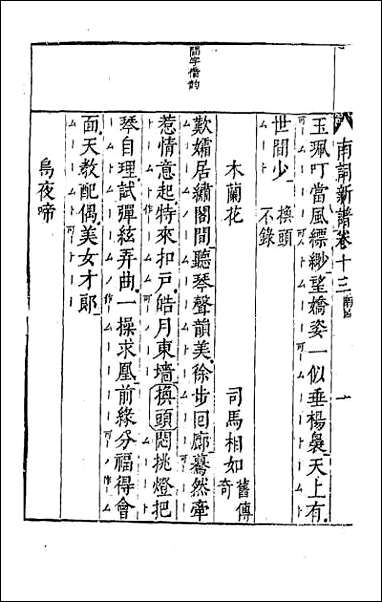 間字借韵
南詞新譜卷十三
一
玉珮叮當風縹緲望嬌姿一似垂楊裊天上有
世間少 換頭不錄
木蘭花 司馬相如 舊傳奇
歎孀居繡閣間聽琴聲韻美徐步回廊驀然牽
惹情意起特來扣戶皓月東墻換頭悶挑燈把
琴自理試彈絃弄曲一操求凰前緣分福得會
面天教配偶美女才郎
烏夜啼